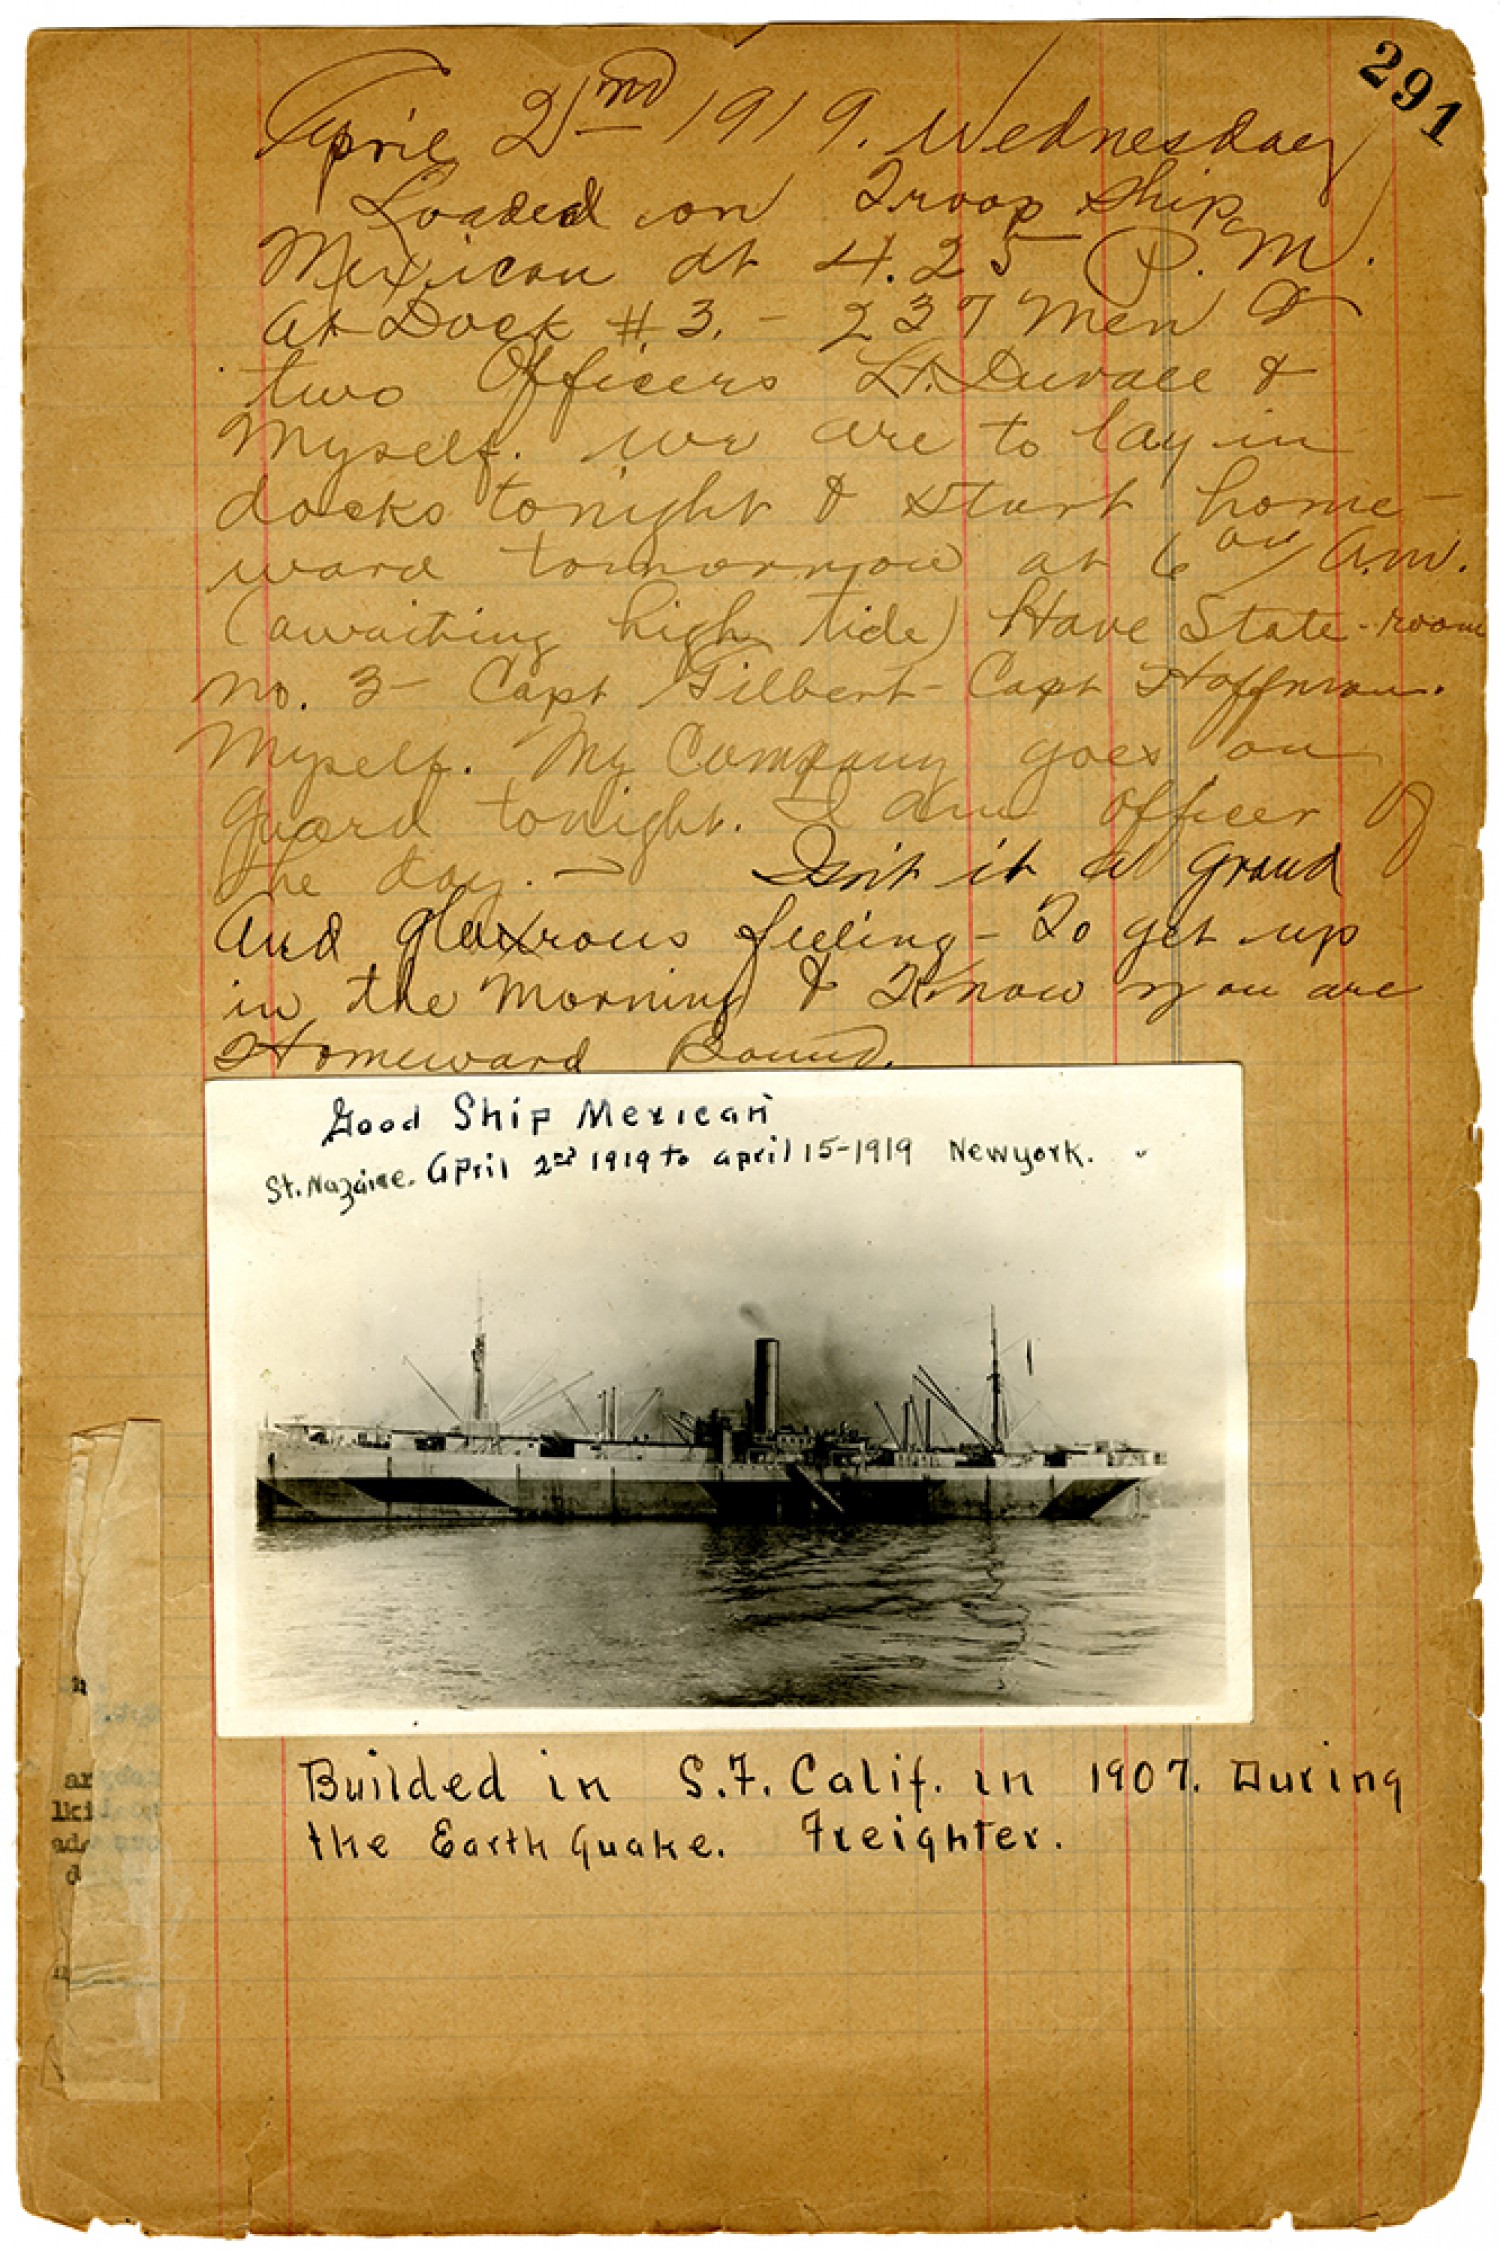 291
April 2nd 1919. Wednesday
Loaded on Troop Ship
Mexican at 4.25 P.M.
At Dock #3. - 237 Men &
two Officers Lt. Duvall &
Myself. We are to lay in
docks tonight & start home-
ward tomorrow at 6 00/ A.M.
(awaiting high tide) Have State-room
no. 3 - Capt Gilbert - Capt Hoffman.
Myself. My Company goes on
Guard tonight. I am Officer of
the day. - Isn't it a Grand
And feeling - To get up
in the Morning & Know you are
Homeward Bound.
Good Ship Mexican
St. Nazaire. April 2nd 1919 to april 15-1919 Newyork.
Builded in S.F. Calif. in 1907. During
the Earth Quake. Freighter.
n
ar
lki
ad
d